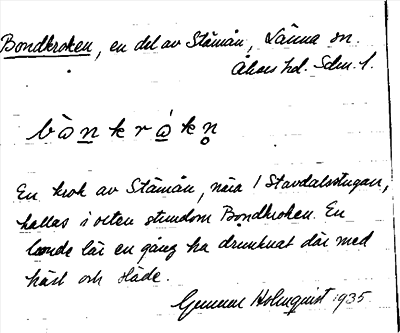 Bondkroken, en del av Stäman, Länna sn
Åkers hd. Sdm. l.
bò̀n k r ó k n̥
En krok av Stäman, nära 1 Stavdalsstugan,
kallas i orten stundom Bondkroken. En
bonde lär en gång ha drunknat där med
häst och släde.
Gunnar Holmquist 1935